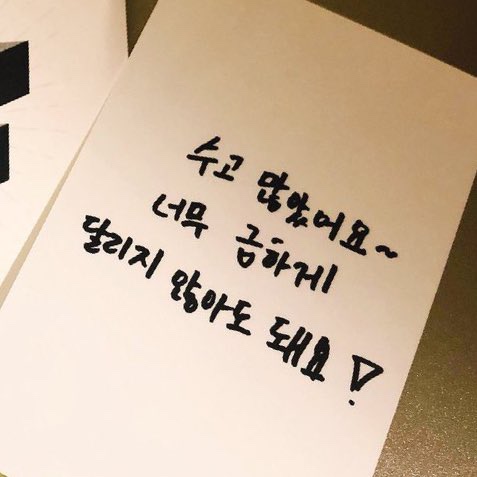 수고 많았어요~
너무 급하게
달리지 않아도 돼요!